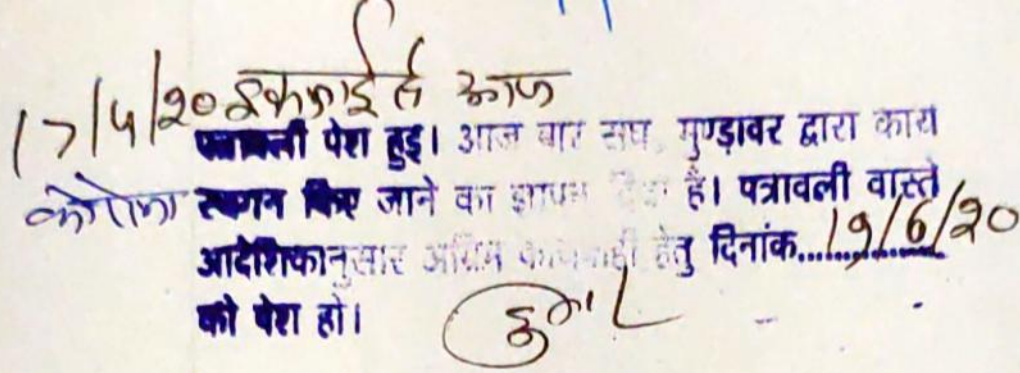 17/4/20
पत्रावली पेश हुई। आज बार संघ, मुण्डावर द्वारा कार्य
कोरोना स्थगन किए जाने का ज्ञापन दिया है। पत्रावली वास्ते
आदेशिकानुसार अग्रिम कार्यवाही हेतु दिनांक......19/6/20
को पेश हो।